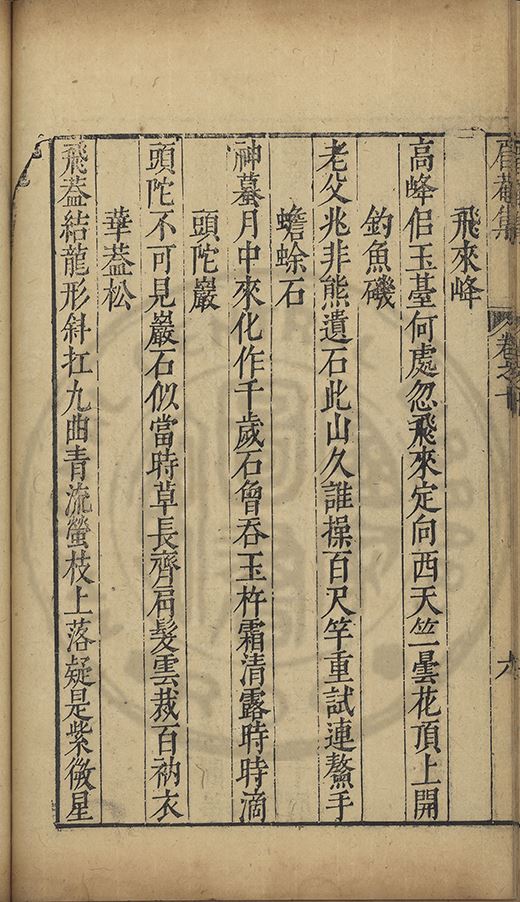 集
卷之十
六
飛來峰
高峰侣玉臺何處忽飛來定向西天竺曇花頂上開
釣魚磯
老父兆非熊遺石此山久誰操百尺竿重試連鰲手
蟾蜍石
神蟇月中來化作千歲石曾吞玉杵霜清露時時滴
頭陀巖
頭陀不可見巖石似當時草長齊肩髮雲裁百衲衣
華蓋松
飛蓋結龍形斜扛九曲青流螢枝上落疑是紫微星